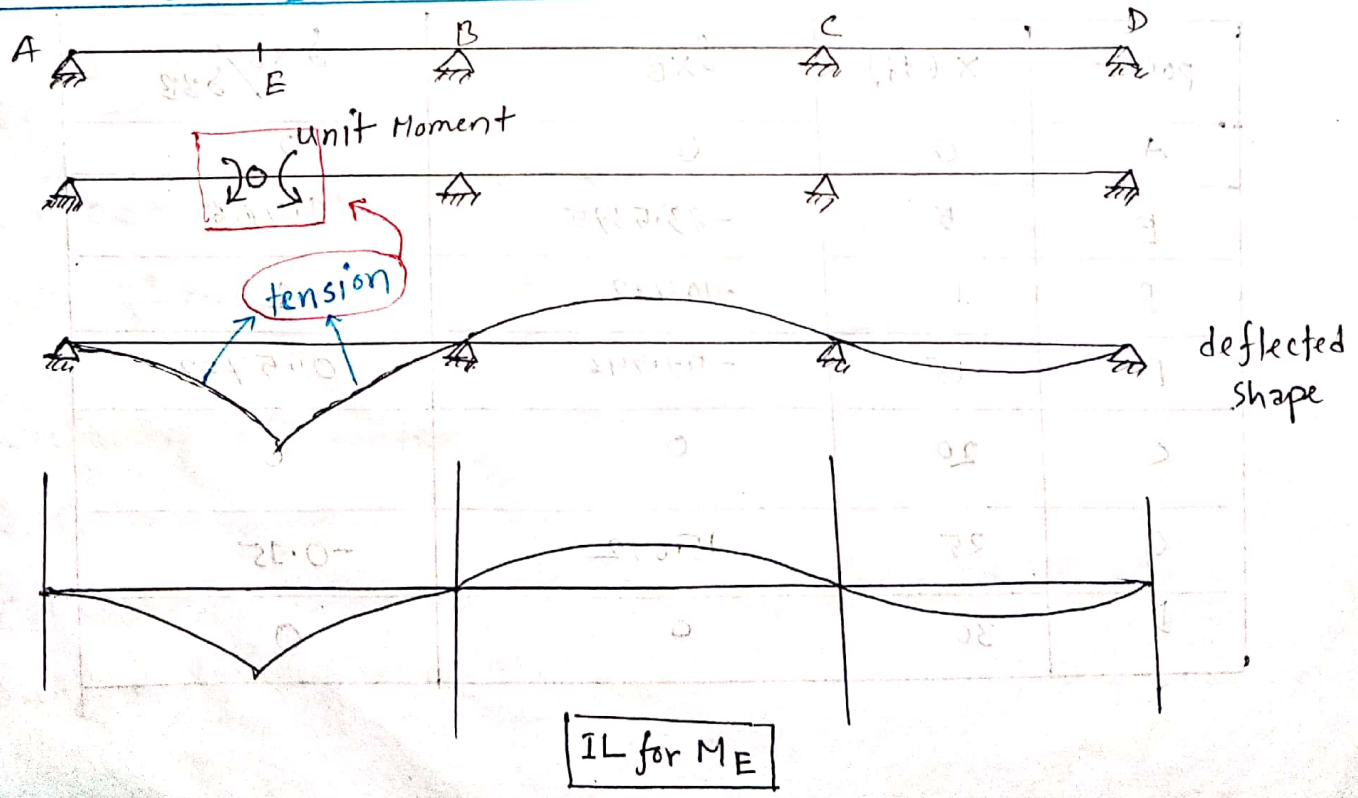 A B C D
E
unit Moment
tension
deflected
shape
IL for ME